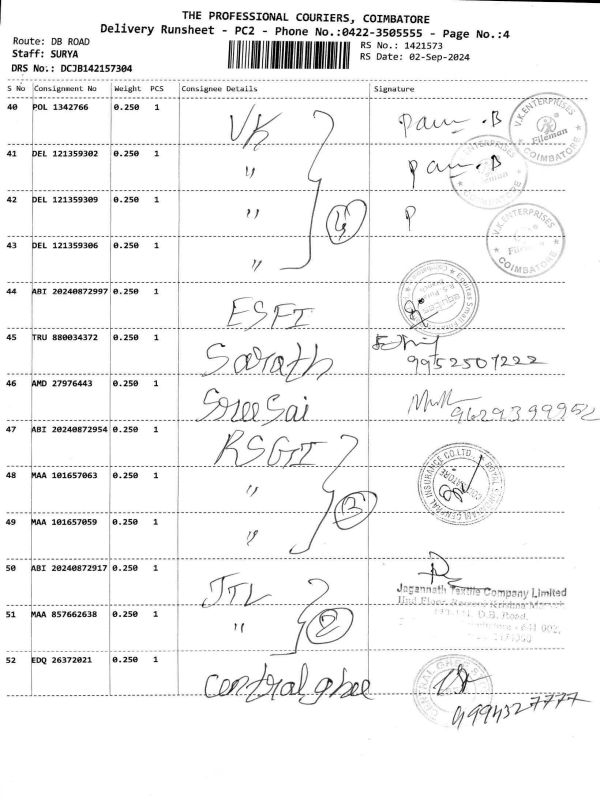 THE PROFESSIONAL COURIERS, COIMBATORE
Delivery Runsheet - PC2 - Phone No.:0422-3505555 - Page No.:4
Route: DB ROAD
Staff: SURYA
DRS No.: DCJB142157304
RS No.: 1421573
RS Date: 02-Sep-2024
S No Consignment No Weight PCS Consignee Details Signature
40 POL 1342766 0.250 1 VK Pam .B
V.K.ENTERPRISES Fileman COIMBATORE
41 DEL 121359302 0.250 1 " Pam .B
ENTERPRISES COIMBATORE
42 DEL 121359309 0.250 1 " P
V.K.ENTERPRISES COIMBATORE
43 DEL 121359306 0.250 1 "
4
44 ABI 20240872997 0.250 1 ESFI
45 TRU 880034372 0.250 1 Sarath 9952507222
46 AMD 27976443 0.250 1 Sree Sai 9629399952
47 ABI 20240872954 0.250 1 RSGI
48 MAA 101657063 0.250 1 "
49 MAA 101657059 0.250 1 "
3
50 ABI 20240872917 0.250 1 JTL
Jagannath Textile Company Limited
51 MAA 857662638 0.250 1 "
2
D.B. Road,
52 EDQ 26372021 0.250 1 Central ghee
9994327777